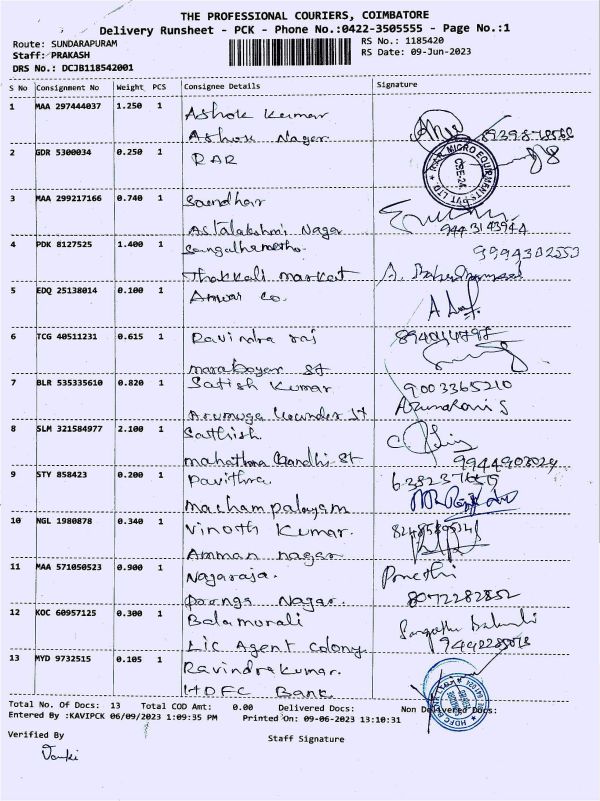 THE PROFESSIONAL COURIERS, COIMBATORE
Delivery Runsheet - PCK - Phone No.:0422-3505555 - Page No.:1
Route: SUNDARAPURAM
RS No.: 1185420
Staff: PRAKASH
RS Date: 09-Jun-2023
DRS No.: DCJB118542001
S No Consignment No Weight PCS Consignee Details Signature
1 MAA 297444037 1.250 1 Ashok Kumar
Ashok Nagar
2 GDR 5300034 0.250 1 RAR
R.A.R MICRO EQUIPMENTS PVT LTD
3 MAA 299217166 0.740 1
Astalakshmi Nagar 9443143944
4 PDK 8127525 1.400 1 9994302553
Thakkali market
5 EDQ 25138014 0.100 1 Anwar Co.
6 TCG 40511231 0.615 1 Ravindra raj
St
7 BLR 535335610 0.820 1 Satish Kumar 9003365210
Arumuga Gounder St Arunarani S
8 SLM 321584977 2.100 1 Satthish
mahathma Gandhi St 9944903024
9 STY 858423 0.200 1 Pavithra
Machampalayam
10 NGL 1980878 0.340 1 Vinoth Kumar.
Amman nagar
11 MAA 571050523 0.900 1 Nagaraja.
Poonga Nagar. 8072282852
12 KOC 60957125 0.300 1 Balamurali
Lic Agent Colony
13 MYD 9732515 0.105 1 Ravindrakumar.
HDFC Bank
Total No. Of Docs: 13 Total COD Amt: 0.00 Delivered Docs: Non Delivered Docs:
Entered By :KAVIPCK 06/09/2023 1:09:35 PM Printed On: 09-06-2023 13:10:31
Verified By
Staff Signature